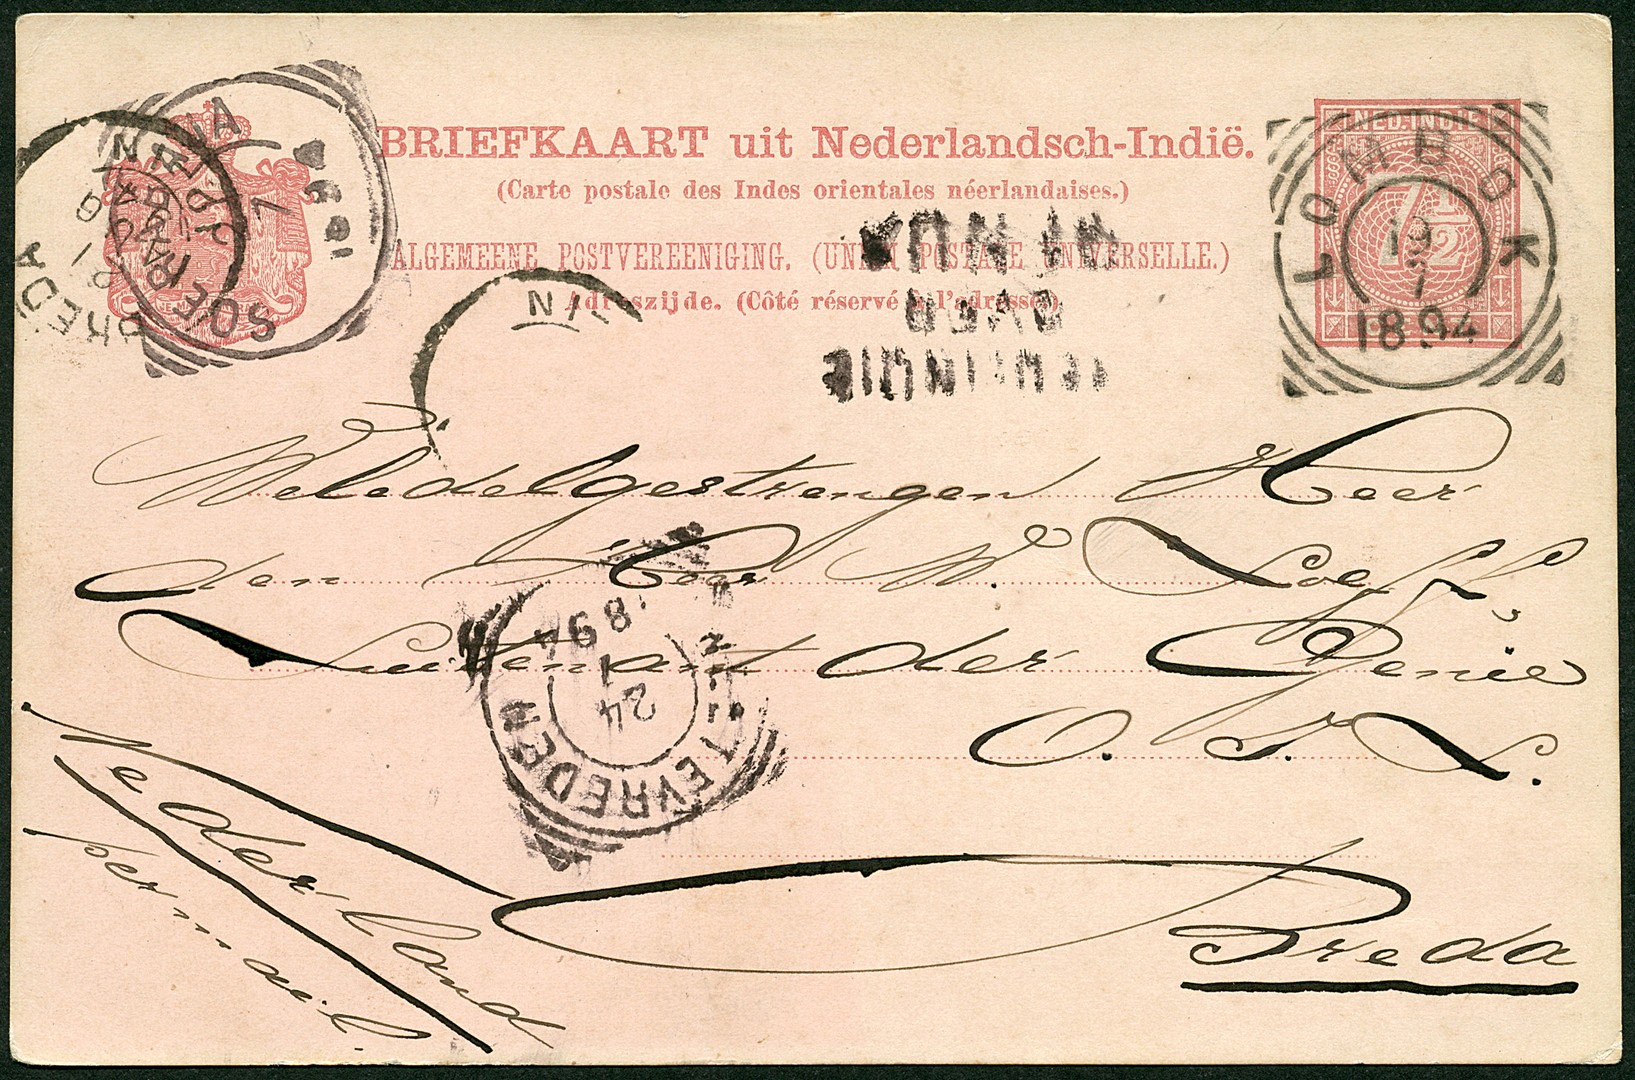 BRIEFKAART uit Nederlandsch-Indië.
(Carte postale des Indes orientales néerlandaises.)
ALGEMEENE POSTVEREENIGING. (UNION POSTALE UNIVERSELLE.)
Adreszijde. (Côté réservé à l'adresse.)
NED. INDIE
7 1/2
LOMBOK
19
1
1894
SOERABAIJA
BREDA
N.I.
Weledelgestrengen Heer
den Heer W. Loeff,
Luitenant der Genie
O. I. L.
Breda
Nederland
per mail.
WELTEVREDEN
24
1
1894